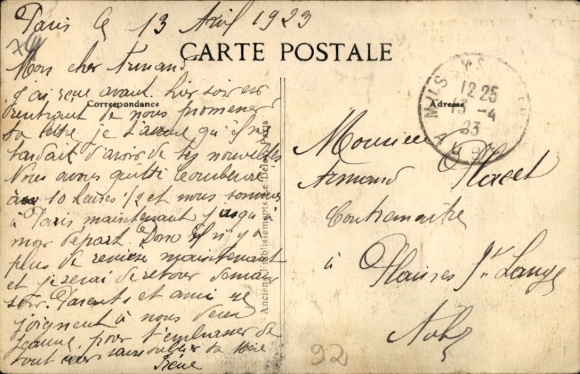 Paris le 13 Avril 1923
CARTE POSTALE
Correspondance
Adresse
Mon cher Armand
j'ai reçu avant hier soir en
rentrant de nous promener
ta lettre je t'avoue qu'il me
tardait d'avoir de tes nouvelles
Nous avons quitté
à 10 heures 1/2 et nous sommes
à Paris maintenant jusqu'à
mon départ Donc il n'y a
plus de maintenant
et je serai de retour demain
soir. Parents et amis se
joignent à nous deux
Jeanne pour t'embrasser de
tout cœur sans oublier ta
Irène
12 25
13 - 4
23
AUBE
Monsieur
Armand
Contremaître
à Plaines St Lange
Aube
92